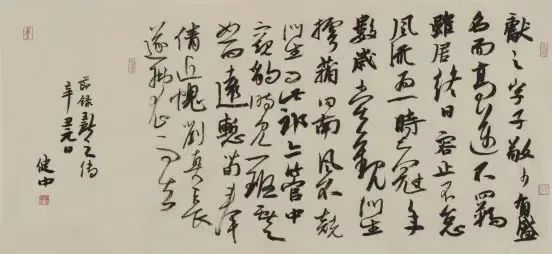 獻之字子敬少有盛
名而高邁不羈
雖居終日容止不怠
風流為一時之冠年
數歲嘗觀門生
樗蒱曰南風不競
門生曰此郎亦管中
窺豹時見一斑獻之
怒曰遠慚荀奉
倩近愧劉真長
遂拂衣而去
節錄獻之傳
辛丑元日
健中